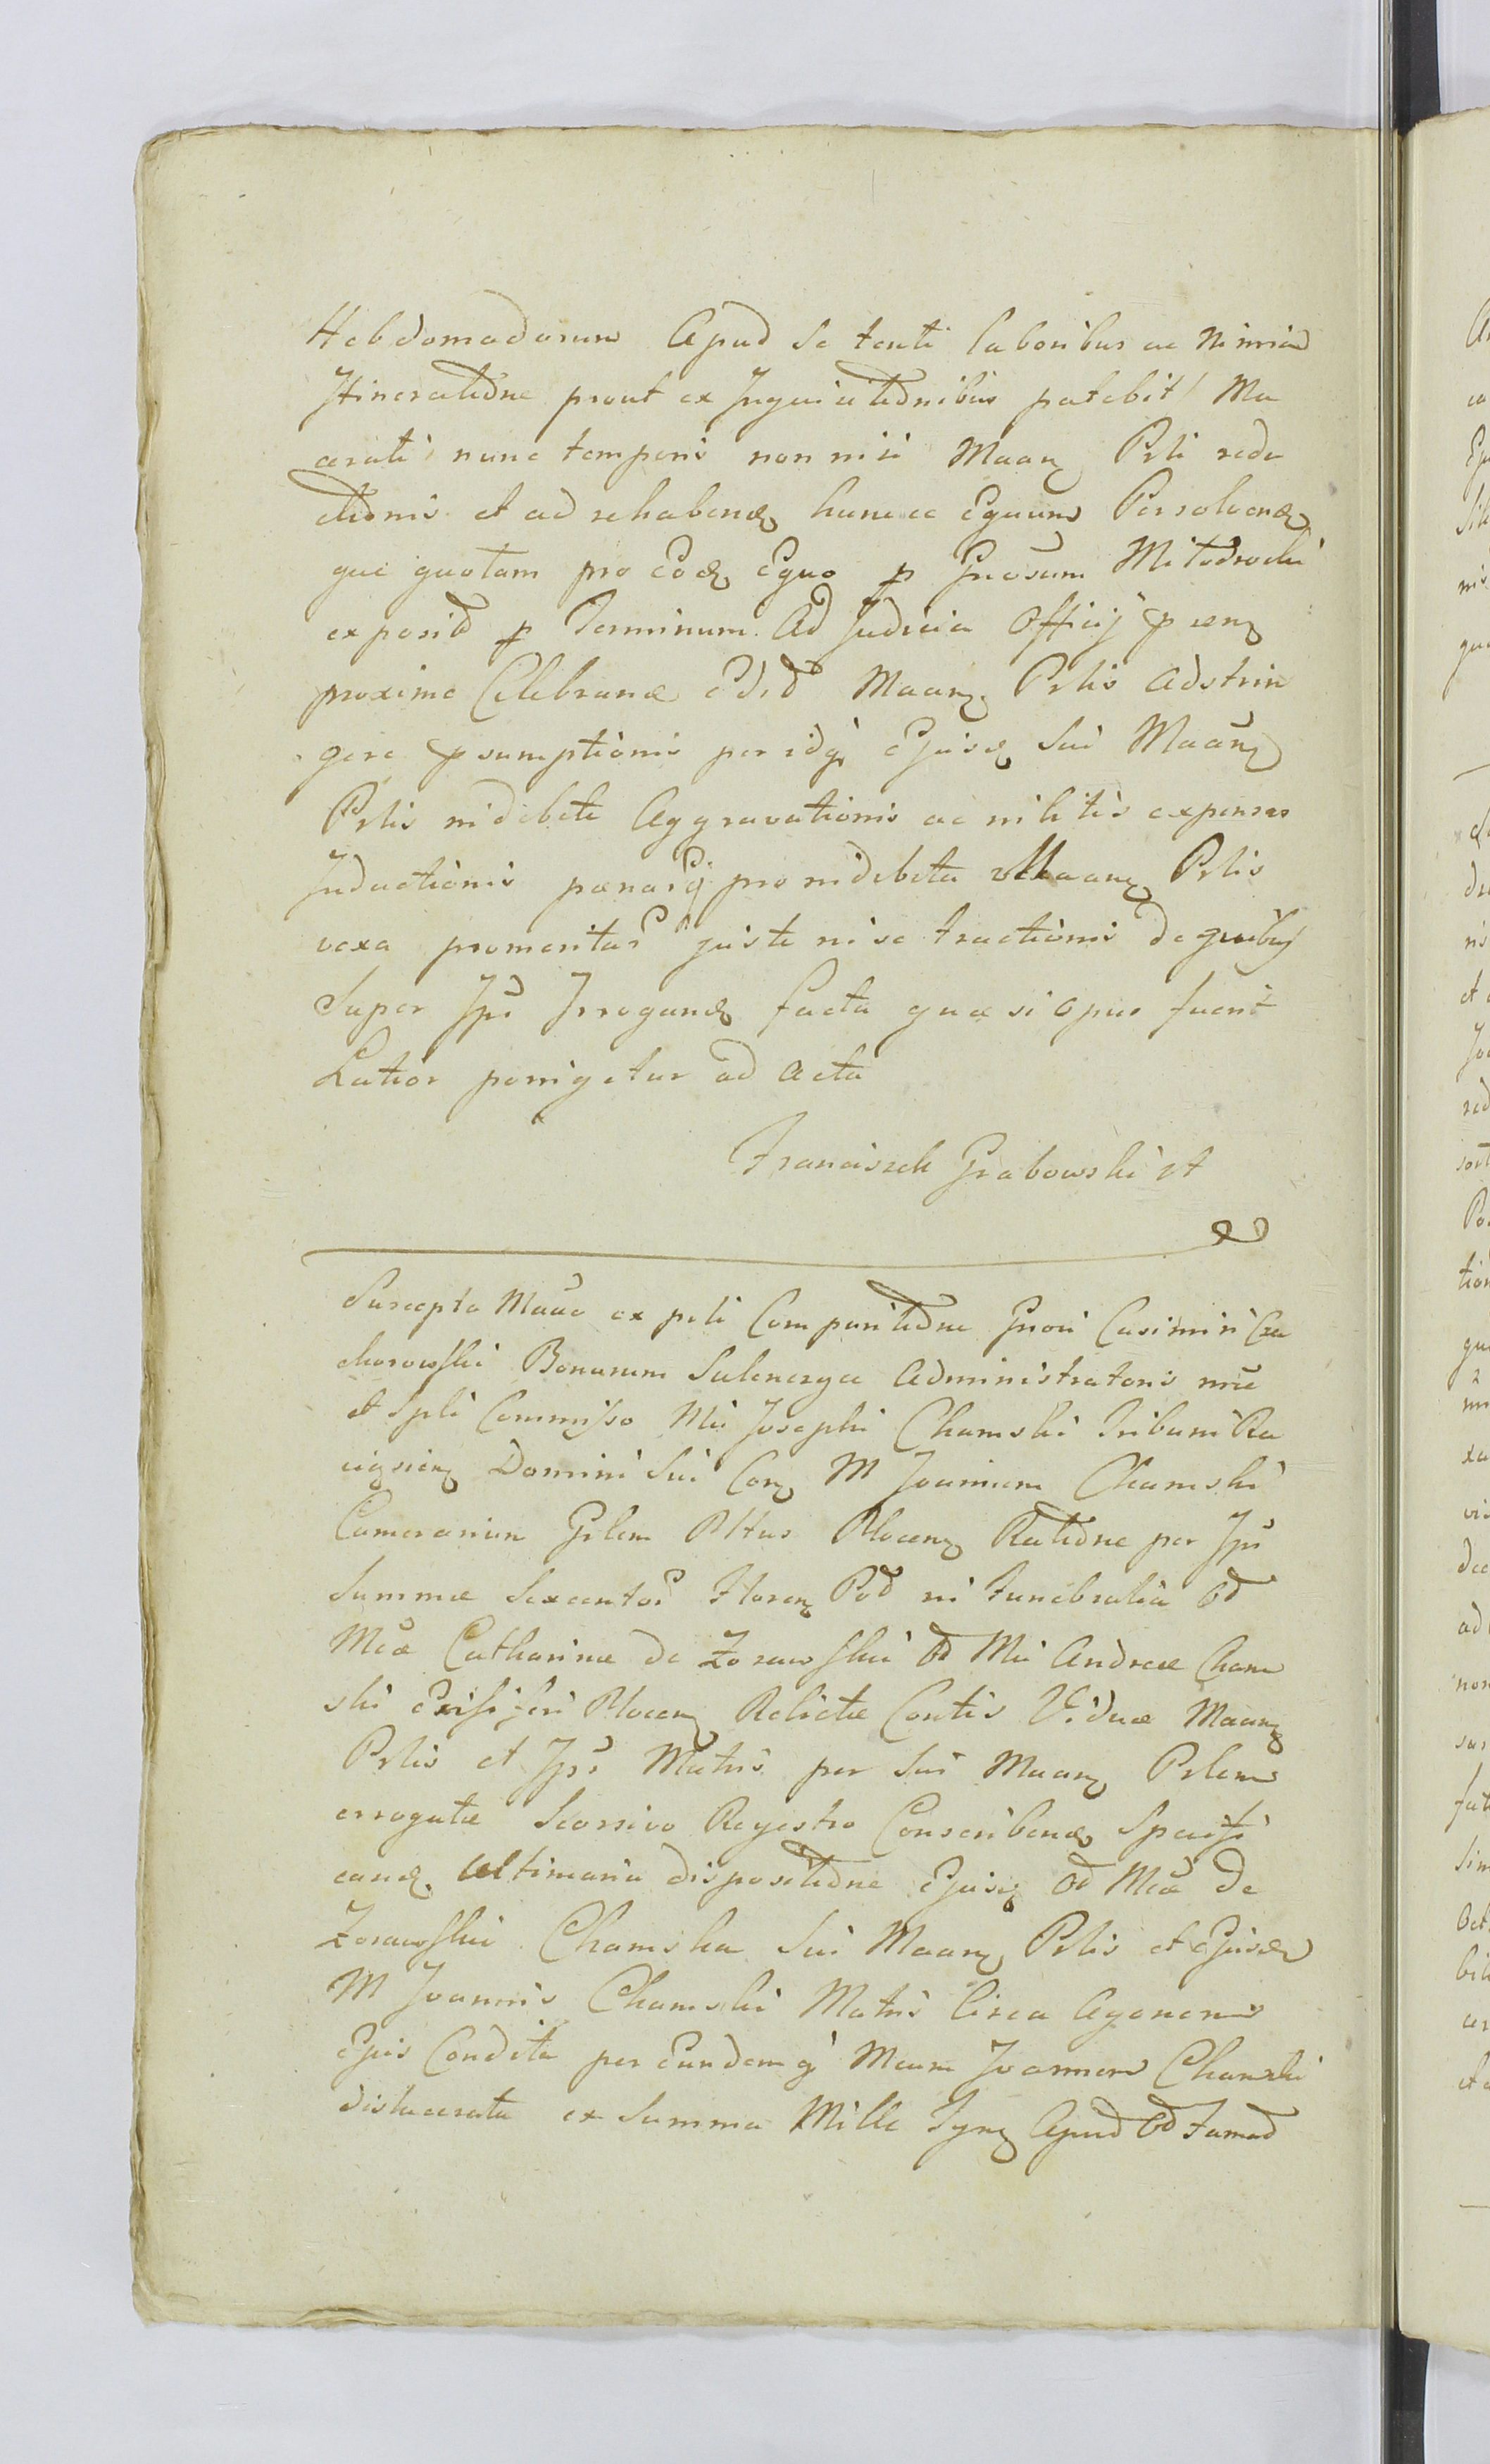 Hebdomadarum Apud se tenti laboribus ac nimiad
Itineratione prout ex Inquisitionibus patebit / Ma
cerati nunc temporis non nisi Maan Prti redu
ctionis et ad rehabend hunc ce Equum Persolvend
que quotam pro Eod Equo p Gnosum Mitodrocki
exposit p Terminum Ad Judicia Officij p aen
proxime Celebranda edit Maan Prtis adstrin
gere p sumptionis per idq Ejusd sui Maan
Prtis indebite Aggravationis ac in litis expensas
Inductionis pænasq pro indebita Maan Prtis
vexa promeritas juste in se tractionis de quibus
super Ips Irrogand facta quæ si opus fuerit
Latior porrigetur ad Acta
Franciszek Grabowski
Suscepta Maae ex prti Comparitione Gnosi Casimiri Cza
chorowski Bonorum Sulenczyce Administratoris nne
et Spli Commisso Mci Josephi Chamski Tribuni Ra
ciązien Domini Sui Con M Joannem Chamski
Camerarium Grlem Pltus Plocen Ratione per Ips
Summæ Sexcentos Floren Pol in funebralia Od
Mcæ Catharinæ de Zorawskie Od Mci Andreæ Cham
ski Ensiferi Plocen Relictæ Contis Viduæ Maan
Prtis et Ips Matris per Sui Maan Prtem
errogatæ Seorsivo Regestro Conscribend Specifi
cand Ultimaria dispositione Ejusd Od Mcæ de
Zorawskie Chamska Sui Maan Prtis et Ejusd
M Joannis Chamski Matris Circa Agonem
Ejus Condita per Eundem q Mcum Joannem Chamski
dislacerata ex Summa Mille Tyn Apud Od Famad